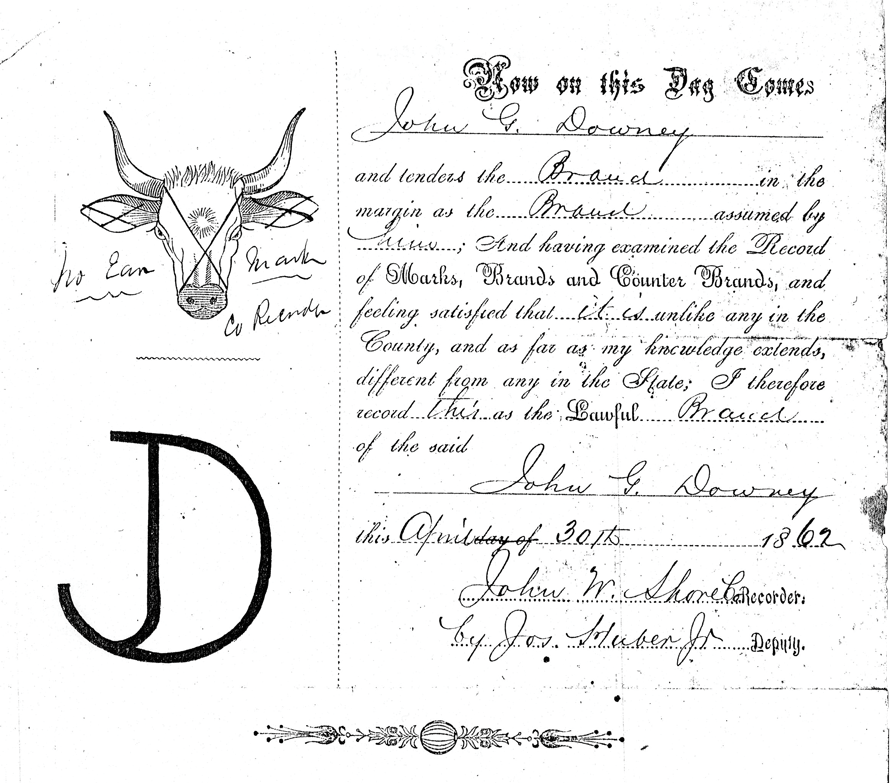 No Ear Mark
Co Recorder
JD
Now on this Day Comes
John G. Downey
and tenders the Brand in the
margin as the Brand assumed by
him; And having examined the Record
of Marks, Brands and Counter Brands, and
feeling satisfied that it is unlike any in the
County, and as far as my knowledge extends,
different from any in the State; I therefore
record this as the Lawful Brand
of the said
John G. Downey
this April day of 30th 1862
John W. Shore Co. Recorder.
by Jos. Huber Jr Deputy.